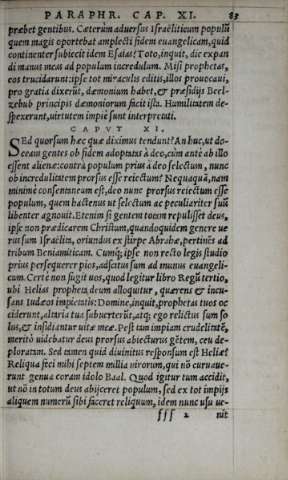 PARAPHR. CAP. XI. 83
præbet gentibus. Cæterùm aduersus Israëliticum populũ
quem magis oportebat amplecti fidem euangelicam, quid
continenter subiecit idem Esaias? Toto, inquit, die expan
di manus meas ad populum incredulum. Misi prophetas,
eos trucidarunt: ipse tot miraculis editis, illos prouocaui,
pro gratia dixerũt, dæmonium habet, & præsidijs Beel-
zebub principis dæmoniorum facit ista. Humilitatem de-
spexerunt, uirtutem impiè sunt interpretati.
CAPVT XI.
SEd quorsum hæc quæ diximus tendunt? An huc, ut do-
ceam gentes ob fidem adoptatas à deo, cùm antè ab illo
essent alienæ: contra populum prius à deo selectum, nunc
ob incredulitatem prorsus esse reiectum? Nequaquã, nam
minimè consentaneum est, deo nunc prorsus reiectum esse
populum, quem hactenus ut selectum ac peculiariter suũ
libenter agnouit. Etenim si gentem totam repulisset deus,
ipse non prædicarem Christum, quandoquidem genere ue
rus sum Israëlita, oriundus ex stirpe Abrahæ, pertinẽs ad
tribum Beniamiticam. Cumq́; ipse non recto legis studio
prius persequerer pios, adscitus sum ad munus euangeli-
cum. Certè non fugit uos, quod legitur libro Regũ tertio,
ubi Helias propheta deum alloquitur, quærens & incu-
sans Iudæos impietatis: Domine, inquit, prophetas tuos oc
ciderunt, altaria tua subuerterũt, atq; ego relictus sum so
lus, & insidiantur uitæ meæ. Post tam impiam crudelitatẽ,
meritò uidebatur deus prorsus abiecturus gẽtem, ceu de-
ploratam. Sed tamen quid diuinitus responsum est Heliæ?
Reliqua feci mihi septem millia uirorum, qui nõ curuaue-
runt genua coram idolo Baal. Quod igitur tum accidit,
ut nõ in totum deus abijceret populum, sed ex tot impijs
aliquem numerũ sibi faceret reliquum, idem nunc usu ue-
fff 2 nit